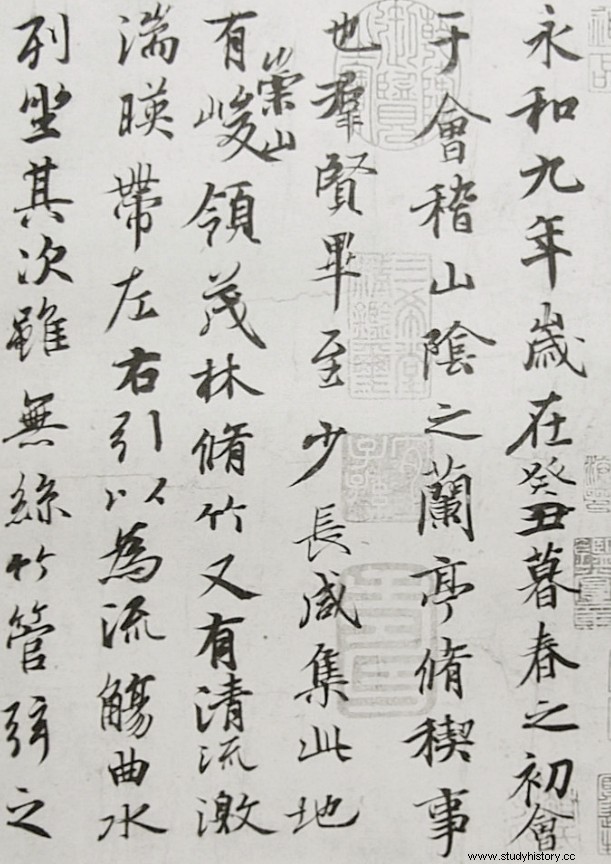 永和九年歲在癸丑暮春之初會
于會稽山陰之蘭亭脩稧事
也羣賢畢至少長咸集此地
有崇山峻領茂林脩竹又有清流激
湍暎帶左右引以為流觴曲水
列坐其次雖無絲竹管弦之
www.studyhistory.cc